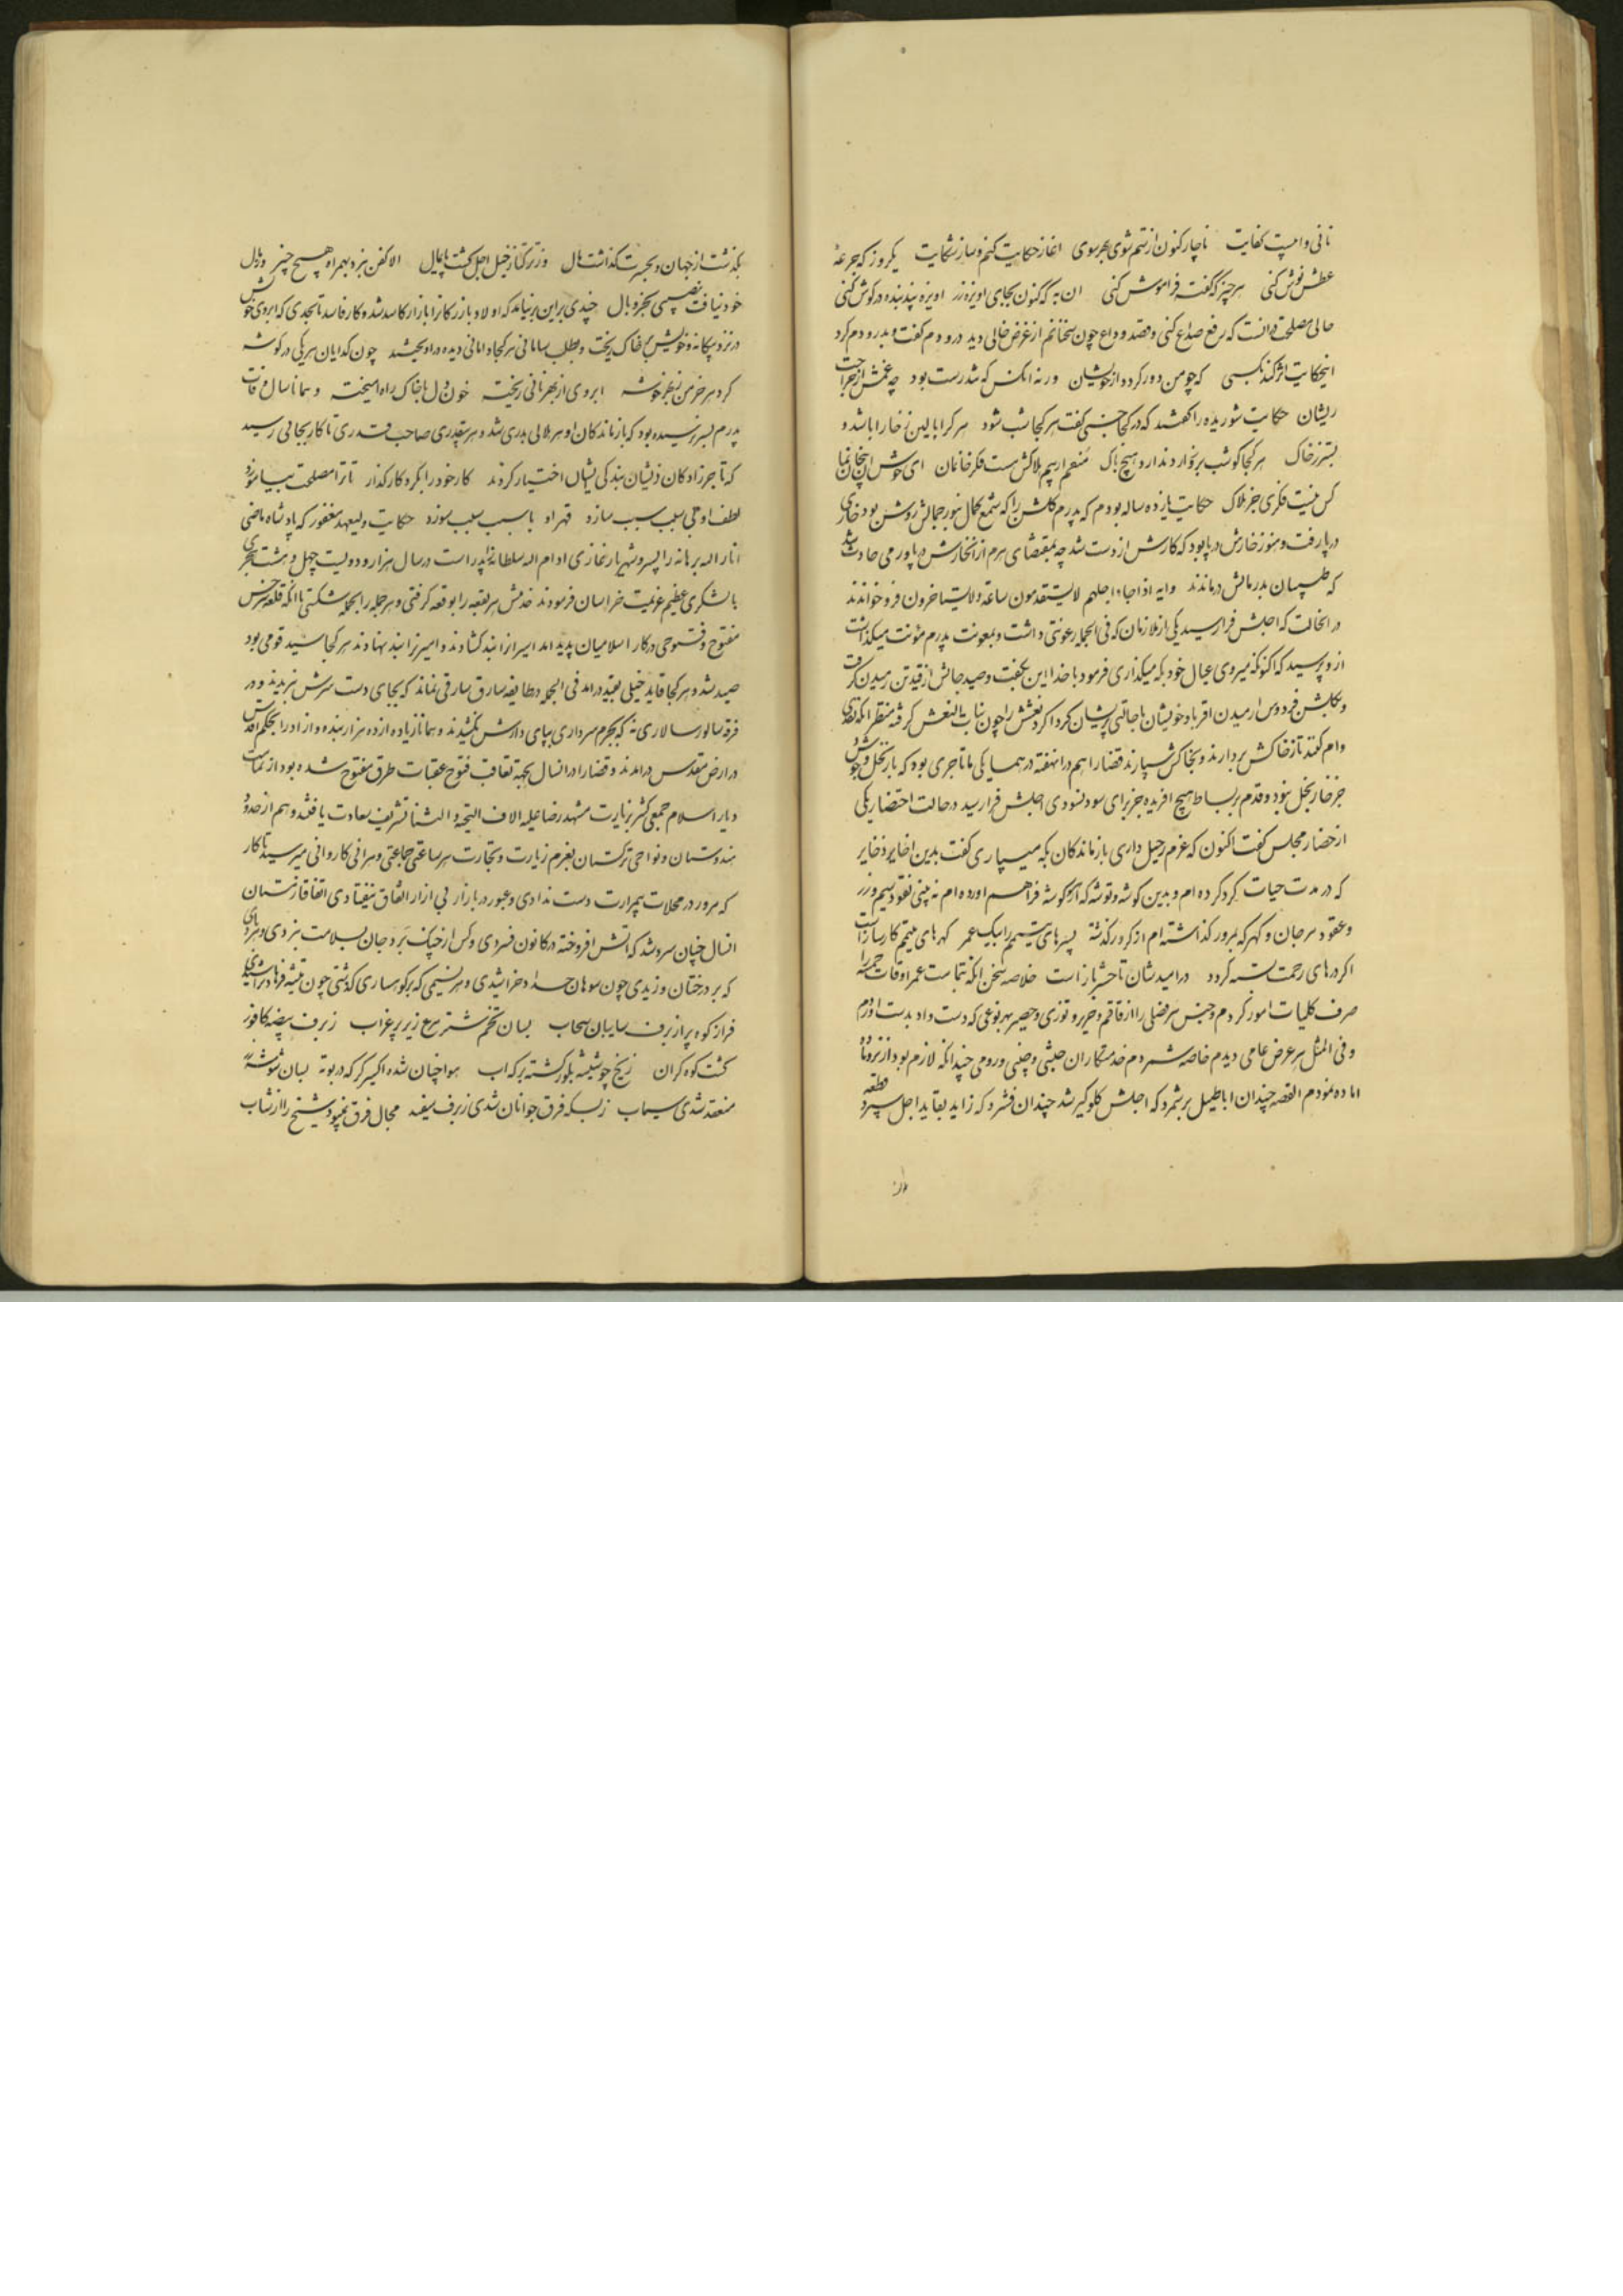 نانی و امیت کفایت ناچار کنون از ستم شوی بهر سوی اغاز حکایت کنم و ساز شکایت یکروز که جرعهٔ
عطش نوش کنی هر چیز که گفتند فراموش کنی ان به که کنون بجای اویزه زر اویزه پند بنده در کوش کنی
حالی مصلحت دانست که رفع صداع کنی و قصد وداع چون سخنانم از غرض خالی دید درودم گفت و بدرودم کرد
اینحکایت اثر کند بکسی که چو من دور کرده از خویشان ورنه انکس که تندرست بود چه غمش از جراحت
ریشان حکایت شوریده را گفتند که در کجا گفت هر کجا شب شود هر کرا بالین ز خارا باشد و
بستر ز خاک هر کجا کو شب بر نخوار د ندارد هیچ باک منعم ار بیم هلاکش هست فکر خانمان ای خوش انکجان نما
کس نیست فکری جز هلاک حکایت یازده ساله بودم که پدرم گلشن را که شمع کمال بنور جمالش روشن بود خاری
در پا رفت و هنوز خارش در پا بود که کارش از دست شد چه بمقتضای هرم از انخارش در پا ورمی حادث شد
که طبیبان بدرمانش درماندند و ایه اذا جاء اجلهم لا یستقدمون ساعة و لا یستاخرون فرو خواندند
در انحالت که اجلش فرا رسید یکی از ملازمان که فی الجمله رعونتی داشت و بمعونت پدرم مؤنت میگذاشت
ازو پرسید که اکنون که میروی عیال خود بکه میگذاری فرمود با خدا این بگفت و صید جانش از قید تن رمیدن گرفت
و بگلشن فردوس ارمیدن اقربا و خویشان باحالتی پریشان گرداگرد نعشش را چون بنات النعش گرفته منتظر انکه نقدی
وام کنند تا ز خاکش بردارند و بخاکش سپارند قضا را هم در انهفته در همسایگی ما تاجری بود که باز نخل وجودش
جز خار بخل نبود و قدم بر بساط هیچ افریده جز برای سود نسودی اجلش فرا رسید در حالت احتضار یکی
از حضار مجلس گفت اکنون که عزم رحیل داری بازماندگان بکه میسپاری گفت بدین اخایر و ذخایر
که در مدت حیات گرد کرده ام و بدین گوشه و توشه که از هر گوشه فراهم اورده ام نه بینی نقود سیم و زر
و عقود مرجان و گهر که بمرور گذاشته ام از کرور گذشته پسرهای یتیمم را بیک عمر گهرهای یتیم کارسازاست
اگر درهای رحمت بسته گردد در امیدشان تا حشر بازاست خلاصه سخن انکه تمامت عمر اوقات خمسه را
صرف کلیات امور کردم و جنس هر فصلی را از قاقم و حریر و توزی و حصیر بهر نوعی که دست داد بدست اوردم
و فی المثل هر عرض عامی دیدم خاصه شمردم خدمتکاران حبشی و چینی و رومی چندانکه لازم بود از نر و ماده
اماده نمودم القصه چندان اباطیل بر شمرد که اجلش گلوگیر شد چندان فشرد که زاید بقاید اجل سپرد قطعه
بگذشت از جهان و بحسرت گذاشت مال وز ترکتاز خیل اجل گشت پایمال الا کفن نبرد بهمراه هیچ چیز وز مال
خود نیافت نصیبی بجز وبال چندی براین بر نیامد که اولاد بازرگانرا بازار کاسد شد و کار فاسد تا بحدی که ابروی خویش
در نزد بیگانه و خویش بخاک ریخت و بطلب سامانی هر کجا دامانی دیده در اویختند چون گدایان هر یکی در گوشه
گرد هر خرمن بنظر خوشه ابروی از بهر نانی ریخته خون دل با خاک راه امیخته و همانا سال وفات
پدرم بسر نرسیده بود که بازماندگان او هر هلالی بدری شد و هر بیقدری صاحب قدری تا کار بجائی رسید
که تاجر زادگان ذیشان بندگی ایشان اختیار کردند کار خود را بگرد کار گذار تا ترا مصلحت بیاموزد
لطف او بی سبب سبب سازد قهر او با سبب سبب سوزد حکایت ولیعهد مغفور که پادشاه ماضی
انار الله برهانه را پسر و شهریار غازی ادام الله سلطانه را پدر است در سال هزار و دویست چهل و هشت هجری
با لشکری عظیم عزیمت خراسان فرمودند خدمش هر بقعه را بوقعه گرفتی و هر جمله را بحمله شکستی تا انکه قلعه سرخس
مفتوح و فتوحی در کار اسلامیان پدید امد اسیرانرا بند گشادند و امیرانرا بند نهادند هر کجا سید قومی بود
صید شد و هر کجا قاید خیلی بقید در امد فی الجمله در طایفه سارق سارقی نماند که بجای دست سرش نبریدند و در
فرقه سالور سالاری نه که بجرم سرداری بپای دارش نکشیدند و همانا زیاده از ده هزار بنده و ازاد را بحکم اقدس
در ارض مقدس در امدند و قضا را در انسال بجهة تعاقب فتوح عقبات طرق مفتوح شده بود از تمامت
دیار اسلام جمعی کثیر بزیارت مشهد رضا علیه الاف التحیة و الثنا تشریف سعادت یافتند و هم از حدود
هندوستان و نواحی ترکستان بعزم زیارت و تجارت هر ساعتی جماعتی و هرانی کاروانی میرسید تا کار
که مرور در محلات بمرارت دست ندادی و عبور در بازار بی ازار اتفاق نیفتادی اتفاقا زمستان
انسال چنان سرد شد که اتش افروخته در کانون فسردی و کس از چنگ برد جان بسلامت نبردی و هر بادی
که بر درختان وزیدی چون سوهان حداد خراشیدی و هر نسیمی که بر کوهساری گذشتی چون تیشه فرهاد تراشیدی
فراز کوه پر از برف سایبان سحاب بسان تخم شتر مرغ زیر پر غراب ز برف بیضه کافور
گشت کوه گران ز یخ چو شیشه بلور گشته برکه اب هوا چنان شده اکسیر گر که در بوته بسان شوشه
منعقد شدی سیماب ز بسکه فرق جوانان شدی ز برف سفید مجال فرق نمیبود شیخ را از شاب